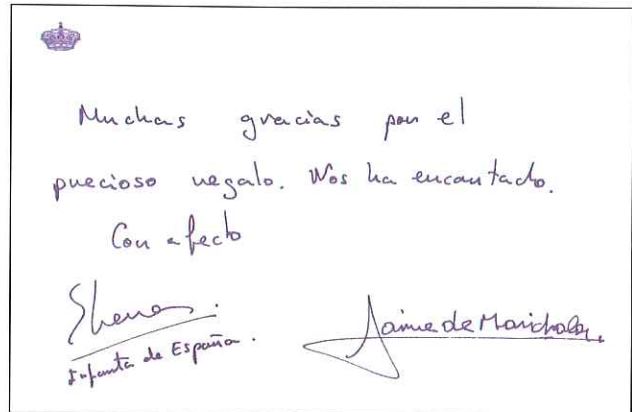 Muchas gracias por el
precioso regalo. Nos ha encantado.
Con afecto
Elena
Infanta de España.
Jaime de Marichalar.